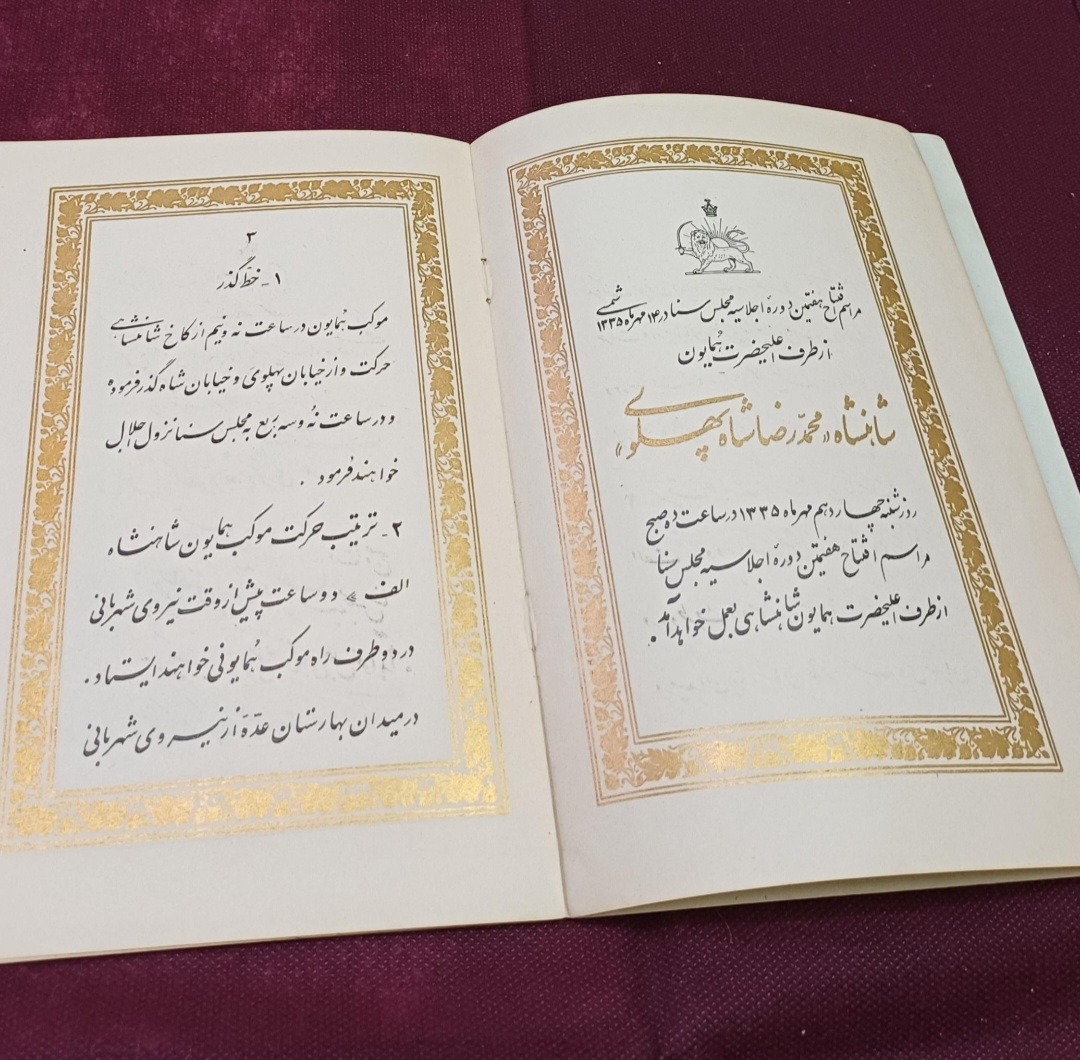 مراسم افتتاح هفتمین دورهٔ اجلاسیه مجلس سنا در ۱۴ مهرماه ۱۳۳۵ شمسی
از طرف اعلیحضرت همایون
شاهنشاه «محمّدرضاشاه پهلوی»
روز شنبه چهاردهم مهرماه ۱۳۳۵ در ساعت ده صبح
مراسم افتتاح هفتمین دورهٔ اجلاسیه مجلس سنا
از طرف اعلیحضرت همایون شاهنشاهی بعمل خواهد آمد .
۳
۱ـ خطّ گذر
موکب همایون در ساعت نه و نیم از کاخ شاهنشاهی
حرکت و از خیابان پهلوی و خیابان شاه گذر فرموده
و در ساعت نه و سه ربع به مجلس سنا نزول اجلال
خواهند فرمود .
۲ـ ترتیب حرکت موکب همایون شاهنشاه
الف » دو ساعت پیش از وقت نیروی شهربانی
در دو طرف راه موکب همایونی خواهند ایستاد .
در میدان بهارستان عدّهٔ از نیروی شهربانی